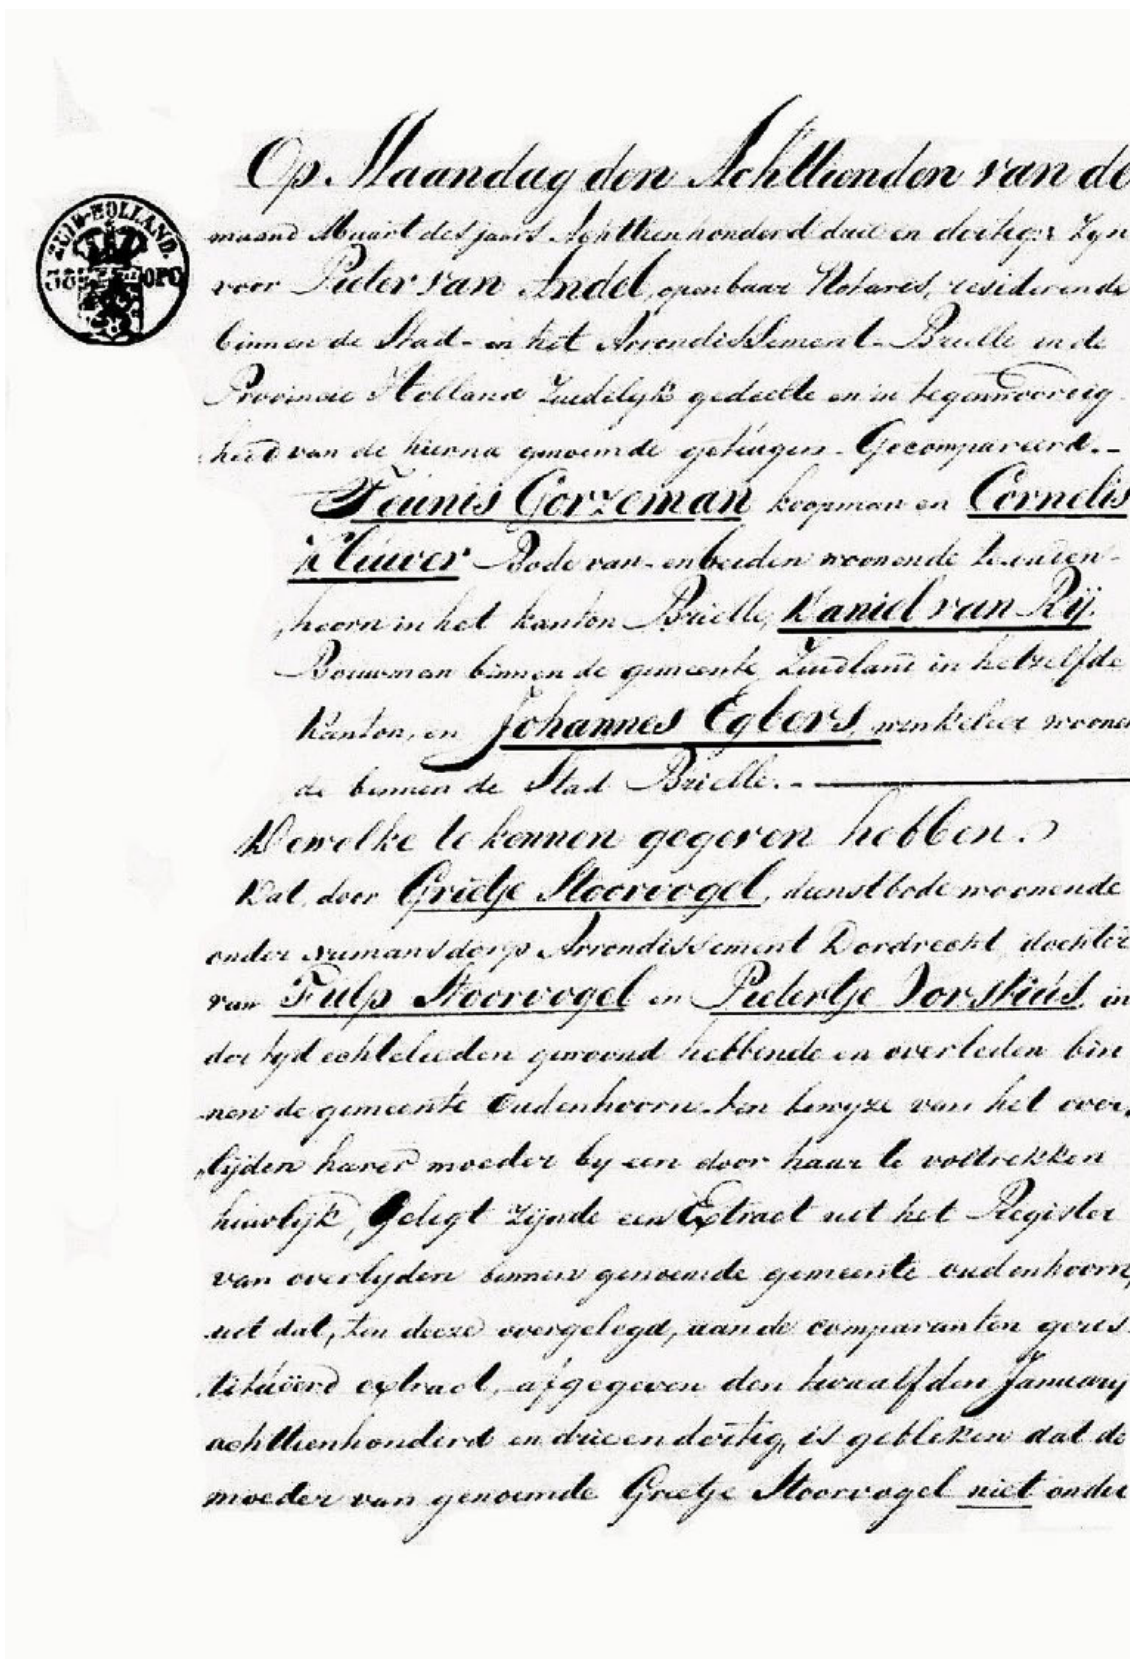 Op Maandag den Achttienden van de
ZUID-HOLLAND.
38 OPC
maand Maart des jaars Achttienhonderd drie en dertig: Zyn
voor Pieter van Andel, openbaar Notaris, resideerende
binnen de Stad en het Arrondissement Brielle in de
Provincie Holland Zuidelyk gedeelte en in tegenwoordig
heid van de hierna genoemde getuigen. Gecompareerd.
Teunis Gorzeman koopman en Cornelis
Kluiver Bode van en beiden woonende te ouden-
hoorn in het kanton Brielle, Daniel van Rij.
Bouwman binnen de gemeente Zuidland in hetzelfde
Kanton, en Johannes Egbers, winkelier woonen
de binnen de Stad Brielle.
Dewelke te kennen gegeven hebben.
Dat door Grietje Stoorvogel, dienstbode woonende
onder numansdorp Arrondissement Dordrecht, dochter
van Fulp Stoorvogel en Pietertje Vorstius, in
der tyd echtelieden gewoond hebbende en overleden bin
nen de gemeente Oudenhoorn. ten bewyze van het over,
lijden harer moeder by een door haar te voltrekken
huwlijk, Gelegt Zijnde een Extract uit het Register
van overlyden binnen genoemde gemeente oudenhoorn,
uit dat, ten deeze overgelegd, aan de comparanten geres-
titueerd extract, afgegeven den twaalfden January
achttienhonderd en drie en dertig, is gebleken dat de
moeder van genoemde Grietje Stoorvogel niet onder